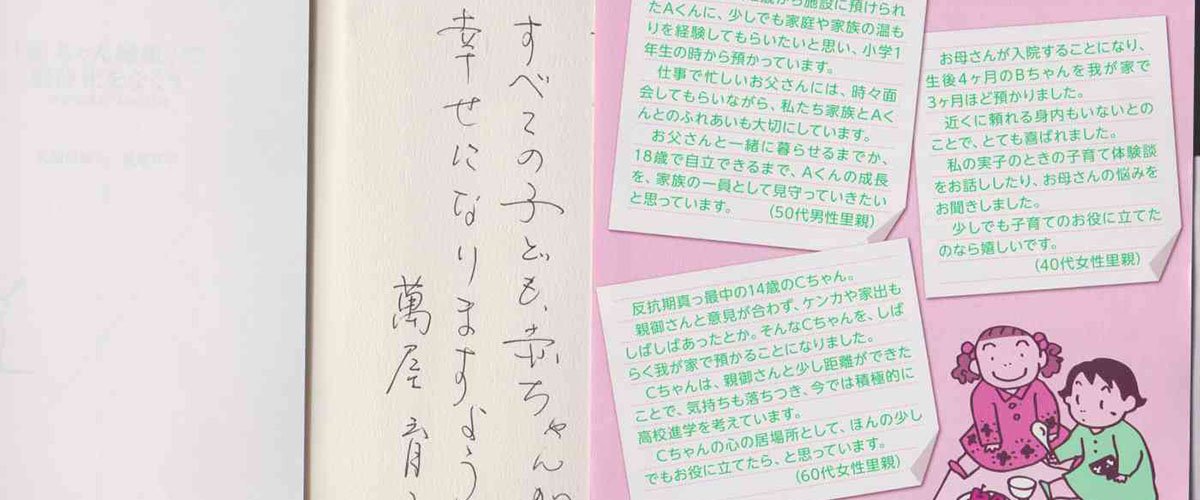 すべての子ども、赤ちゃんが
幸せになりますよう
萬屋 育
から施設に預けられ
たAくんに、少しでも家庭や家族の温も
りを経験してもらいたいと思い、小学1
年生の時から預かっています。
仕事で忙しいお父さんには、時々面
会してもらいながら、私たち家族とAく
んとのふれあいも大切にしています。
お父さんと一緒に暮らせるまでか、
18歳で自立できるまで、Aくんの成長
を、家族の一員として見守っていきたい
と思っています。 (50代男性里親)
お母さんが入院することになり、
生後4ヶ月のBちゃんを我が家で
3ヶ月ほど預かりました。
近くに頼れる身内もいないとの
ことで、とても喜ばれました。
私の実子のときの子育て体験談
をお話ししたり、お母さんの悩みを
お聞きしました。
少しでも子育てのお役に立てた
のなら嬉しいです。
(40代女性里親)
反抗期真っ最中の14歳のCちゃん。
親御さんと意見が合わず、ケンカや家出も
しばしばあったとか。そんなCちゃんを、しば
らく我が家で預かることになりました。
Cちゃんは、親御さんと少し距離ができた
ことで、気持ちも落ちつき、今では積極的に
高校進学を考えています。
Cちゃんの心の居場所として、ほんの少し
でもお役に立てたら、と思っています。
(60代女性里親)